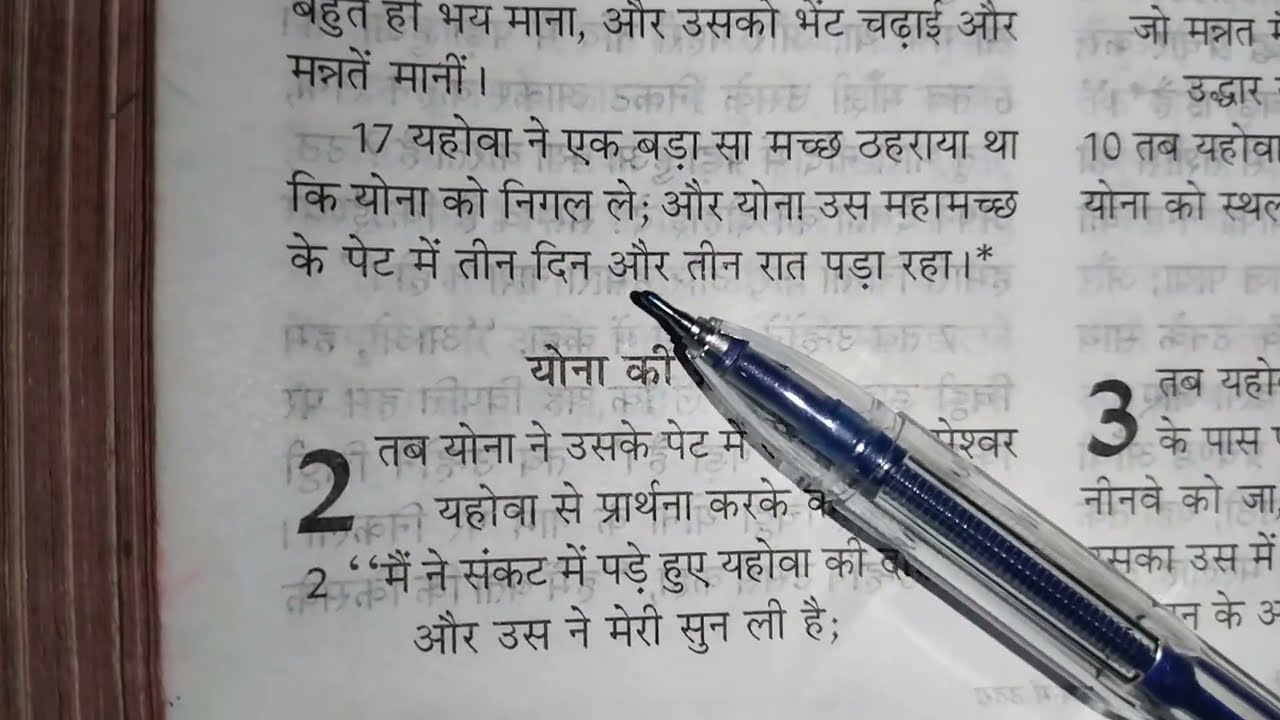 बहुत ही भय माना, और उसको भेंट चढ़ाई और
मन्नतें मानीं।
17 यहोवा ने एक बड़ा सा मच्छ ठहराया था
कि योना को निगल ले; और योना उस महामच्छ
के पेट में तीन दिन और तीन रात पड़ा रहा।*
योना की
2 तब योना ने उसके पेट में
यहोवा से प्रार्थना करके
2 “मैं ने संकट में पड़े हुए यहोवा की
और उस ने मेरी सुन ली है;
जो मन्नत
उद्धार
10 तब यहोवा
योना को
3 तब
के पास
नीनवे को जा,
उस में
के